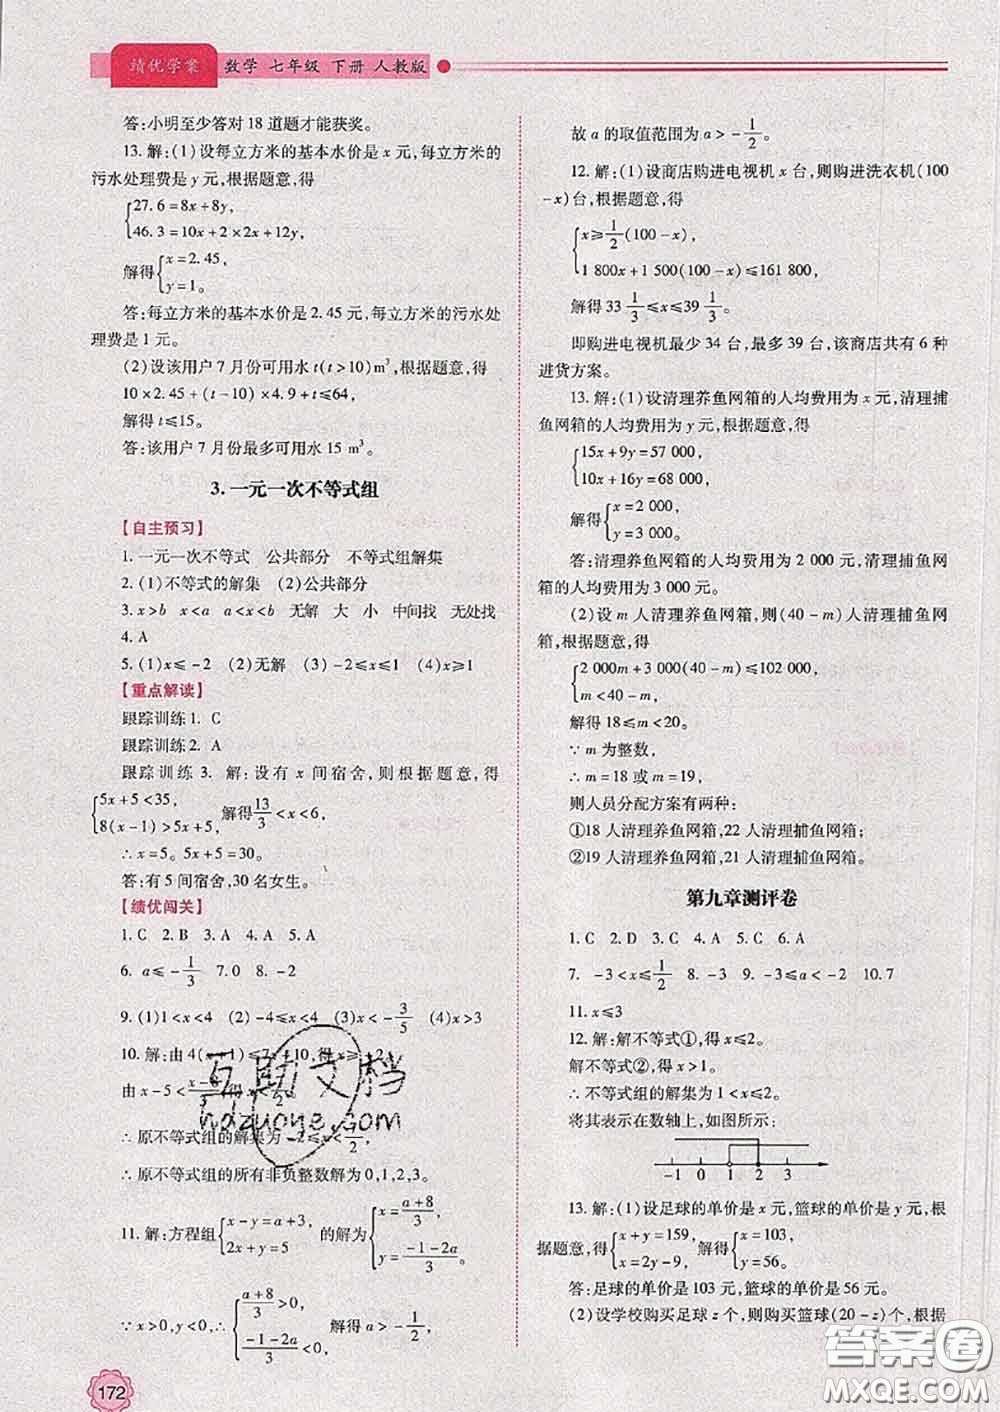 绩优学案 数学 七年级 下册 人教版
答:小明至少答对 18 道题才能获奖。
13. 解:(1)设每立方米的基本水价是 x 元,每立方米的
污水处理费是 y 元,根据题意,得
27.6=8x+8y,
46.3=10x+2×2x+12y,
解得{x=2.45,
y=1。
答:每立方米的基本水价是 2.45 元,每立方米的污水处
理费是 1 元。
(2)设该用户 7 月份可用水 t(t>10)m³,根据题意,得
10×2.45+(t-10)×4.9+t≤64,
解得 t≤15。
答:该用户 7 月份最多可用水 15 m³。
3. 一元一次不等式组
【自主预习】
1. 一元一次不等式 公共部分 不等式组解集
2. (1)不等式的解集 (2)公共部分
3. x>b x<a a<x<b 无解 大 小 中间找 无处找
4. A
5. (1)x≤-2 (2)无解 (3)-2≤x≤1 (4)x≥1
【重点解读】
跟踪训练 1. C
跟踪训练 2. A
跟踪训练 3. 解:设有 x 间宿舍,则根据题意,得
{5x+5<35,
8(x-1)>5x+5, 解得13/3<x<6,
∴x=5。5x+5=30。
答:有 5 间宿舍,30 名女生。
【绩优闯关】
1. C 2. B 3. A 4. A 5. A
6. a≤-1/3 7. 0 8. -2
9. (1)1<x<4 (2)-4≤x<4 (3)x<-3/5 (4)x>3
10. 解:由 4(x+1)≤7x+10,得 x≥-2
由 x-5<
∴原不等式组的解集为-2≤x<7/2,
∴原不等式组的所有非负整数解为 0,1,2,3。
11. 解:方程组{x-y=a+3,
2x+y=5 的解为{x=(a+8)/3,
y=(-1-2a)/3。
∵x>0,y<0,∴{(a+8)/3>0,
(-1-2a)/3<0, 解得 a>-1/2,
172
故 a 的取值范围为 a>-1/2。
12. 解:(1)设商店购进电视机 x 台,则购进洗衣机(100
-x)台,根据题意,得
{x≥1/2(100-x),
1 800x+1 500(100-x)≤161 800,
解得 33 1/3≤x≤39 1/3。
即购进电视机最少 34 台,最多 39 台,该商店共有 6 种
进货方案。
13. 解:(1)设清理养鱼网箱的人均费用为 x 元,清理捕
鱼网箱的人均费用为 y 元,根据题意,得
{15x+9y=57 000,
10x+16y=68 000,
解得{x=2 000,
y=3 000。
答:清理养鱼网箱的人均费用为 2 000 元,清理捕鱼网
箱的人均费用为 3 000 元。
(2)设 m 人清理养鱼网箱,则(40-m)人清理捕鱼网
箱,根据题意,得
{2 000m+3 000(40-m)≤102 000,
m<40-m,
解得 18≤m<20。
∵m 为整数,
∴m=18 或 m=19,
则人员分配方案有两种:
①18 人清理养鱼网箱,22 人清理捕鱼网箱;
②19 人清理养鱼网箱,21 人清理捕鱼网箱。
第九章测评卷
1. C 2. D 3. C 4. A 5. C 6. A
7. -3<x≤1/2 8. -3 9. -3≤a<-2 10. 7
11. x≤3
12. 解:解不等式①,得 x≤2。
解不等式②,得 x>1。
∴不等式组的解集为 1<x≤2。
将其表示在数轴上,如图所示:
-1 0 1 2 3
13. 解:(1)设足球的单价是 x 元,篮球的单价是 y 元,根
据题意,得{x+y=159,
x=2y-9, 解得{x=103,
y=56。
答:足球的单价是 103 元,篮球的单价是 56 元。
(2)设学校购买足球 z 个,则购买篮球(20-z)个,根据
互助文档
hdzuoye.com
答案圈
MXQE.COM